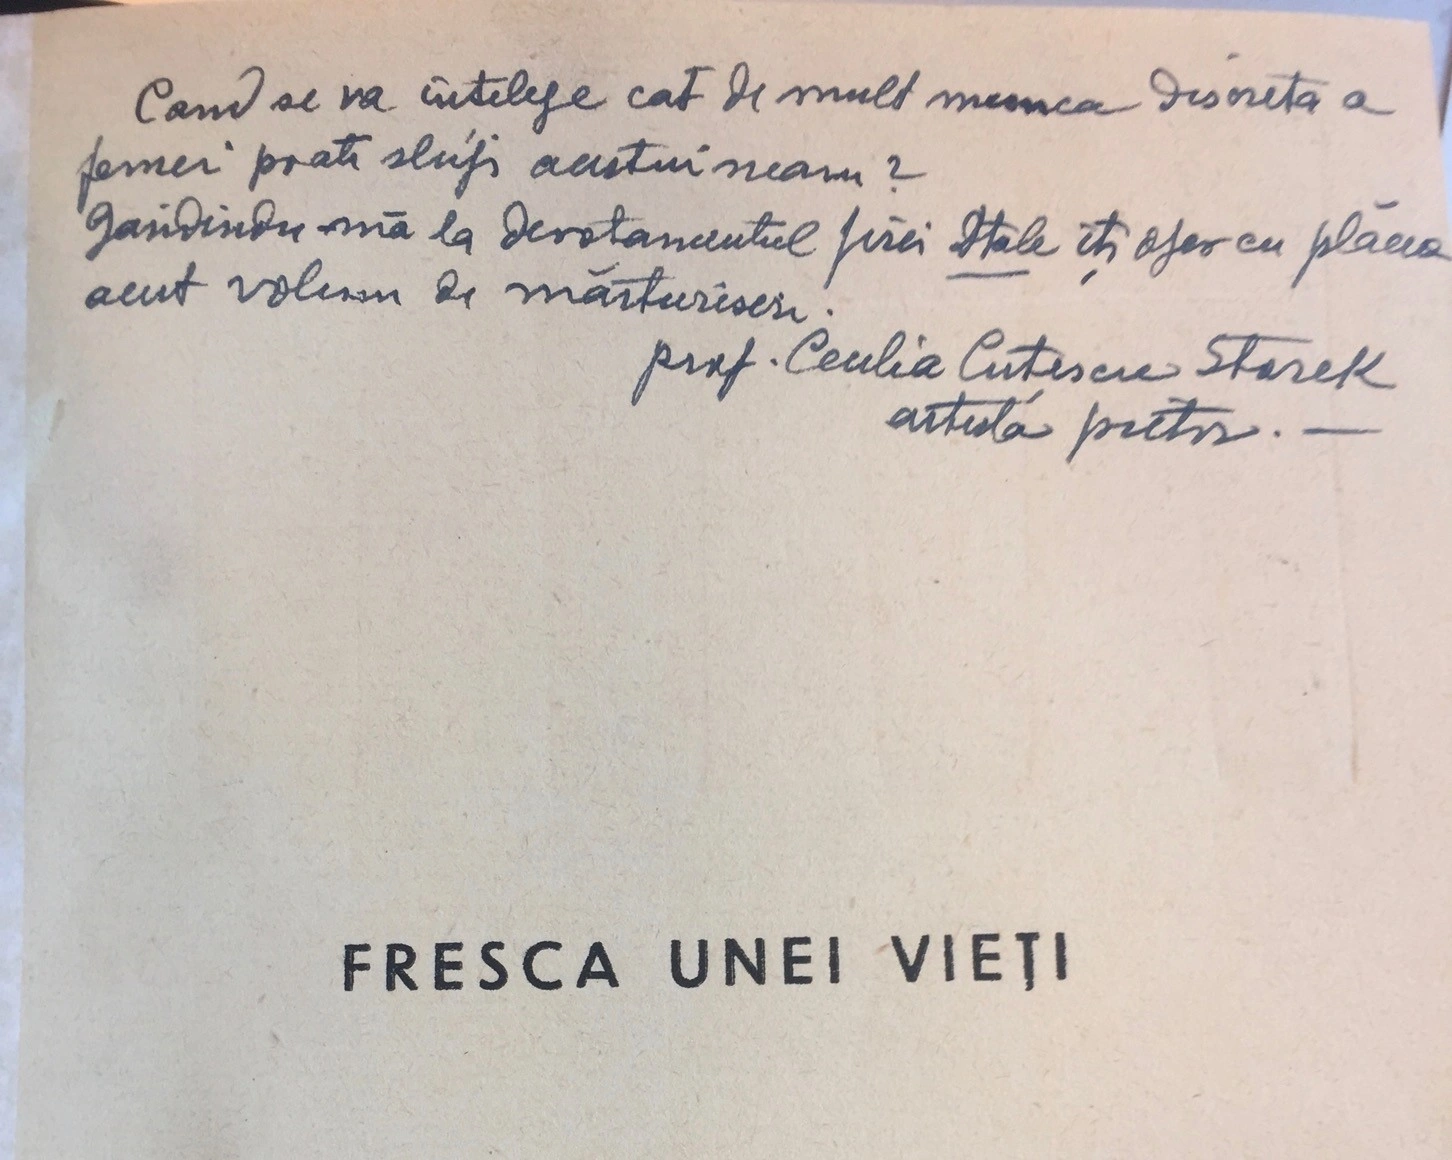 Cand se va întelege cat de mult munca discreta a
femei poate sluji acestui neam?
Gandindu-mă la devotamentul firei Dtale iți ofer cu plăcea
acest volum de mărturisere.
prof. Cecilia Cutescu Storck
artistă pictor. —
FRESCA UNEI VIEȚI